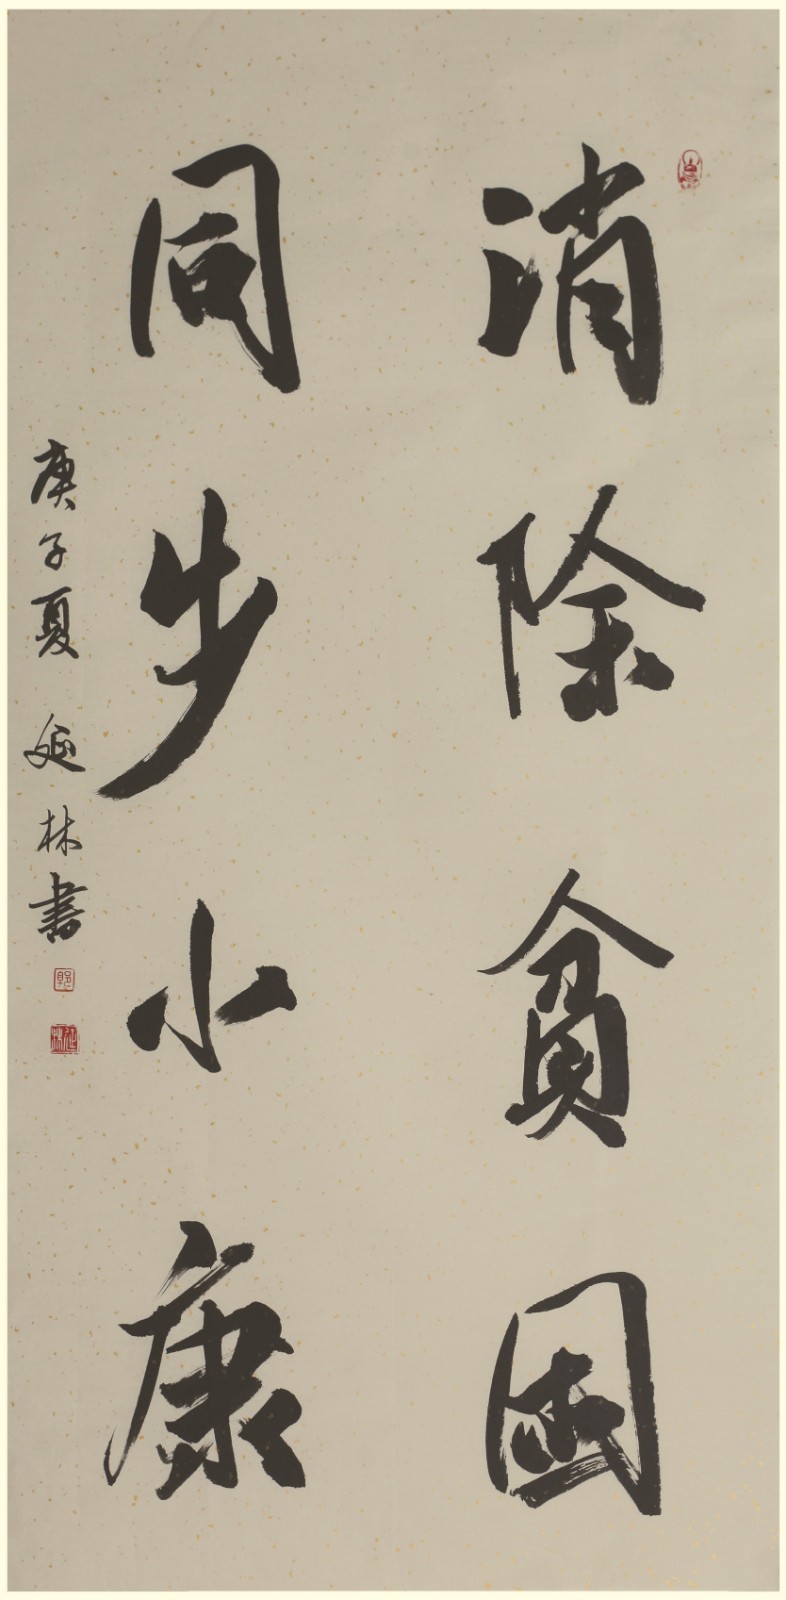 消除贫困
同步小康
庚子夏 延林书